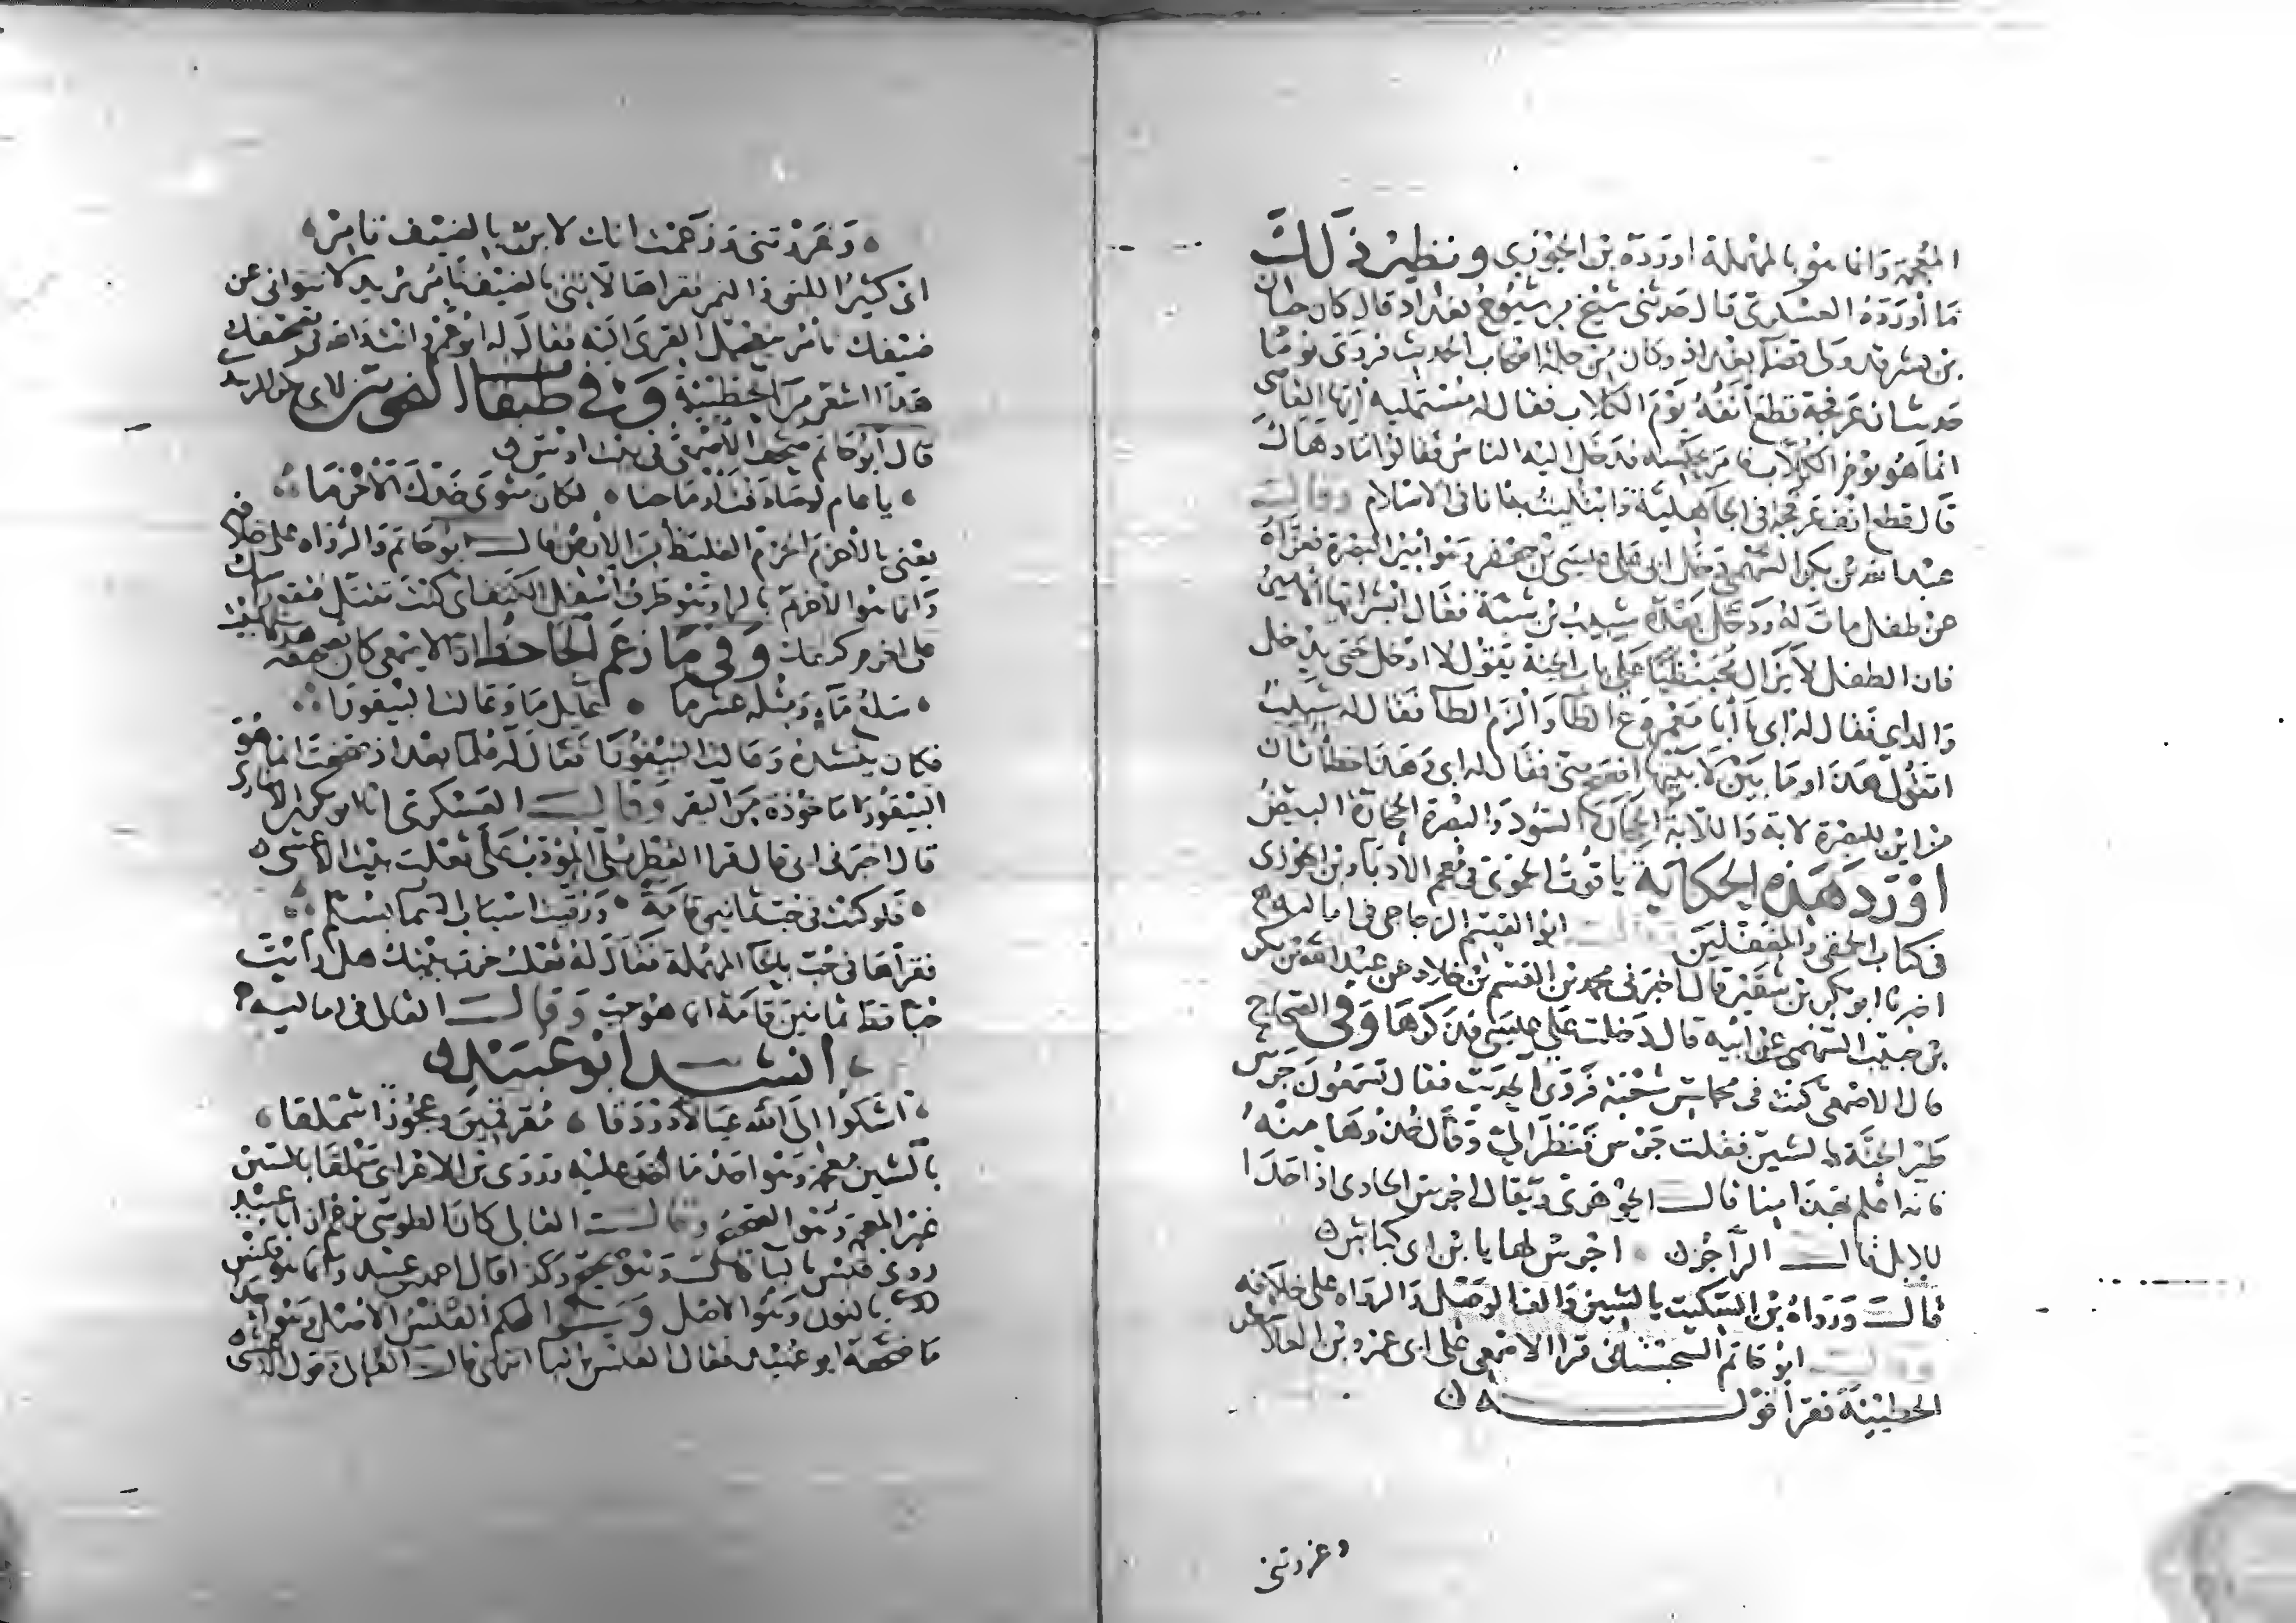 المعجمة وانما هو بالمهملة اورده بن الجوزي ونظير ذلك
ما أورده العسكري قال حدثني شيخ من شيوخ بغداد قال كان حيان
بن بشر قد ولى قضا بغداد وكان من جملة اصحاب الحديث فروى يوما
حديث ان عرفجة قطع أنفه يوم الكلاب فقال له مستمليه أيها القاضي
انما هو يوم الكلاب فامر بحبسه فدخل اليه الناس فقالوا ما دهاك
قال قطع انف عرفجة في الجاهلية وابتليت به انا في الاسلام وقالـــ
عبد الله بن بكر السهمي دخل ابي على عيسى بن جعفر وهو امير البصرة فعزاه
عن طفل مات له ودخل بعده شبيب بن شبة فقال ابشر ايها الامير
فان الطفل لا يزال محبنظيا على باب الجنة يقول لا ادخل حتى يدخل
والداي فقال له ابي يا أبا معمر دع الظا والزم الطا فقال له شبيب
اتقول هذا وما بين لابتيها افصح مني فقال له ابي وهذا خطأ ثان
من اين للبصرة لابة واللابة الحجارة السود والبصرة الحجارة البيض
اورد هذه الحكاية ياقوت الحموي في معجم الأدبا وبن الجوزي
في كتاب الحمقى والمغفلين ابو القسم الزجاجي في اماليه
اخبرنا ابو بكر بن شقير قال اخبرني محمد بن القسم بن خلاد عن عبد الله بن بكر
بن حبيب السهمي عن ابيه قال دخلت على عيسى فذكرها وفي الصحاح
قال الاصمعي كنت في مجلس شعبة فروى الحديث فقال تسمعون جرش
طير الجنة بالشين فقلت جرس فنظر الي وقال خذوها منه
فانه اعلم بهذا منا قالــ الجوهري ويقال اجرس الحادي اذا حدا
للابل قالــ الراجز ٥ اجرش لها يا بن ابي كباش ٥
قالــ ورواه بن السكيت بالشين والف الوصل والرواه على خلافه
وقالــ ابو حاتم السجستاني قرا الاصمعي على ابي عمرو بن العلا شعر
الحطيئة فقرأ قولـــــه ٥
وغررتني
• وغررتني وزعمت انك لابن بالضيف تامر •
اي كثير اللبن والتمر فقراها لا تني بالضيف تامر يريد لا تتوانى عن
ضيفك تامر بتعجيل القرى اليه فقال له ابو عمرو انت والله في تصحيفك
هذا اشعر من الحطيئة وفي طبقات النحويين لابي بكر الزبيدي
قال أبو حاتم صحف الاصمعي في بيت اوس
• يا عام لو صادفت ارماحنا • لكان مثوى خدك الأخرما
يعني بالأحزم الحزم الغليظ من الارض قالــ ابو حاتم والرواه على خلافه
وانما هو الأخرم بالرا وهو طرف اسفل الكتف اي كنت تقتل فيقطع راسك
على اخرم كتفك وفي ما زعم الجاحظ ان الاصمعي كان يصحف هذا البيت
• سلع ما ومثله عشر ما • عايل ما وعالت البيقورا
فكان ينشده وعالت النيقورا فقال له علما بغداد صحفت انما هو
البيقورا ماخوذة من البقر وقالــ العسكري انا ابو بكر بن الانباري
قال اخبرني ابي قال قرا القطربلي المؤدب على ثعلب بيت الاعشى ٥
• فلو كنت في جب ثمانين قامة • ورقيت اسباب السما بسلم
فقرأها في حب بالحا المهملة فقال له ثعلب خرب بيتك هل رأيت
حبا قط ثمانين قامة انما هو جب وقالــ القالي في اماليه
، انشد ابو عبيد ٥
• اشكوا الى الله عيالا دردقا • مقرقمين وعجوزا شملقا •
بالشين معجمة وهو احد ما اخذ عليه وروى بن الاعرابي سملقا بالسين
غير المعجمة وهو الصحيح وقالــ القالي كان الطوسي يزعم ان ابا عبيد
روى قبس بالبا قالــ وهو تصحيف وكذا قال احمد بن عبيد وانما هو قنس
بالنون وهو الاصل القنس الاصل وهو احد
ما صحفه ابو عبيد فقال القبس بالبا انتهى قالــ القالي في قول الاعشى